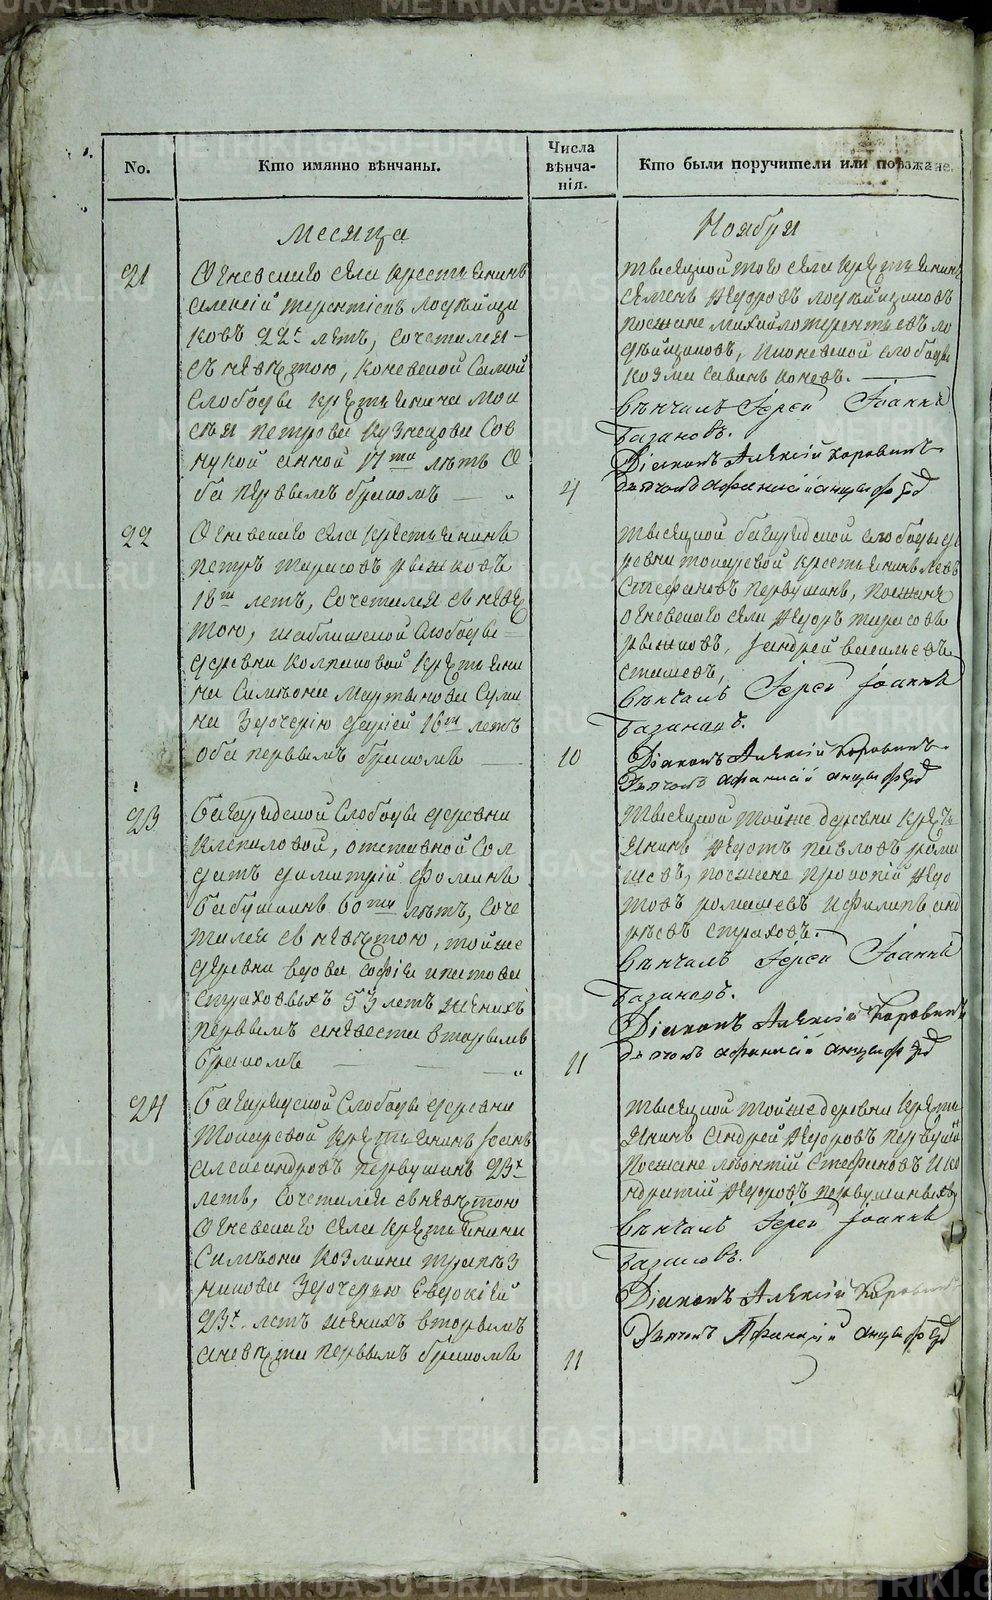 No.
Кто имянно вѣнчаны.
Числа
вѣнча-
нія.
Кто были поручители или поѣзжане.
Месяца
Ноября
21
Огневскаго села крестьянинъ
алексій терентіевъ
ковъ 22х летъ, сочетался
съ невѣстою, коневской самой
слободы крестьянина мои
сѣя петрова кузнецова сов
нукой анной 17ти лѣтъ о
ба первымъ бракомъ
4
тысяцкой того села крестьянинъ
семенъ федоровъ
поезжане михайло терентьевъ
коневской слободы
козма савинъ коневъ.
вѣнчалъ Іерей Іоаннъ
Базановъ.
Діаконъ Алексій Коровинъ
дьячокъ афанасій анцыферовъ
22
Огневскаго села крестьянинъ
петръ тарасовъ рыжковъ
18ти летъ, сочетался съ невес
тою, шаблишской слободы
деревни колпаковой крестьяни
на симеона мартынова
на здочерію дарьей 16ти летъ
оба первымъ бракомъ
10
тысяцкой багарядской слободы де
ревни токаревой крестьянинъ левъ
стефановъ первушинъ, поезжана
огневскаго села федоръ тарасовъ
рыжковъ, андрей васильевъ
вѣнчалъ Іерей Іоаннъ
Базановъ.
Діаконъ Алексій Коровинъ.
Дьячокъ афанасій анцыферовъ
23
Багарядской слободы деревни
клепиловой, отставной сол
датъ димитрій фоминъ
бабушкинъ 60ти лѣтъ, соче
тался съ невѣстою, той же
деревни вдова софіа
страховыхъ 55 летъ женихъ
первымъ а невеста вторымъ
бракомъ
11
тысяцкой той же деревни кресть
янинъ федотъ павловъ рома
шевъ, поезжане прокопій федо
товъ ромашевъ и филипъ анд
рѣевъ страховъ.
вѣнчалъ Іерей Іоаннъ
Базановъ.
Діаконъ Алексій Коровинъ
дьячокъ афанасій анцыферовъ
24
Багарядской слободы деревни
токаревой крестьянинъ іоанъ
александровъ первушинъ 23х
летъ, сочетался съ невѣстою
огневскаго села крестьянина
симеона козмина трапѣз
никова здочерью евдокіей
23х летъ женихъ вторымъ
а невѣста первымъ бракомъ
11
тысяцкой той же деревни кресть
янинъ андрей федоровъ первуши
поезжане леонтій стефановъ и ко
ндратій федоровъ первушиныхъ
вѣнчалъ Іерей Іоаннъ
Базановъ.
Діаконъ Алексій Коровинъ
Дьячокъ Афанасій анцыферовъ
METRIKI.GASO-URAL.RU